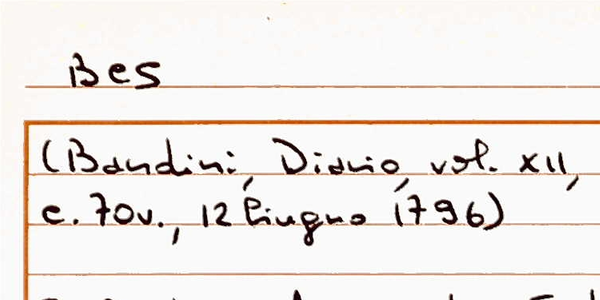 Bes
(Bandini, Diario, vol. XII,
c. 70v., 12 Giugno 1796)